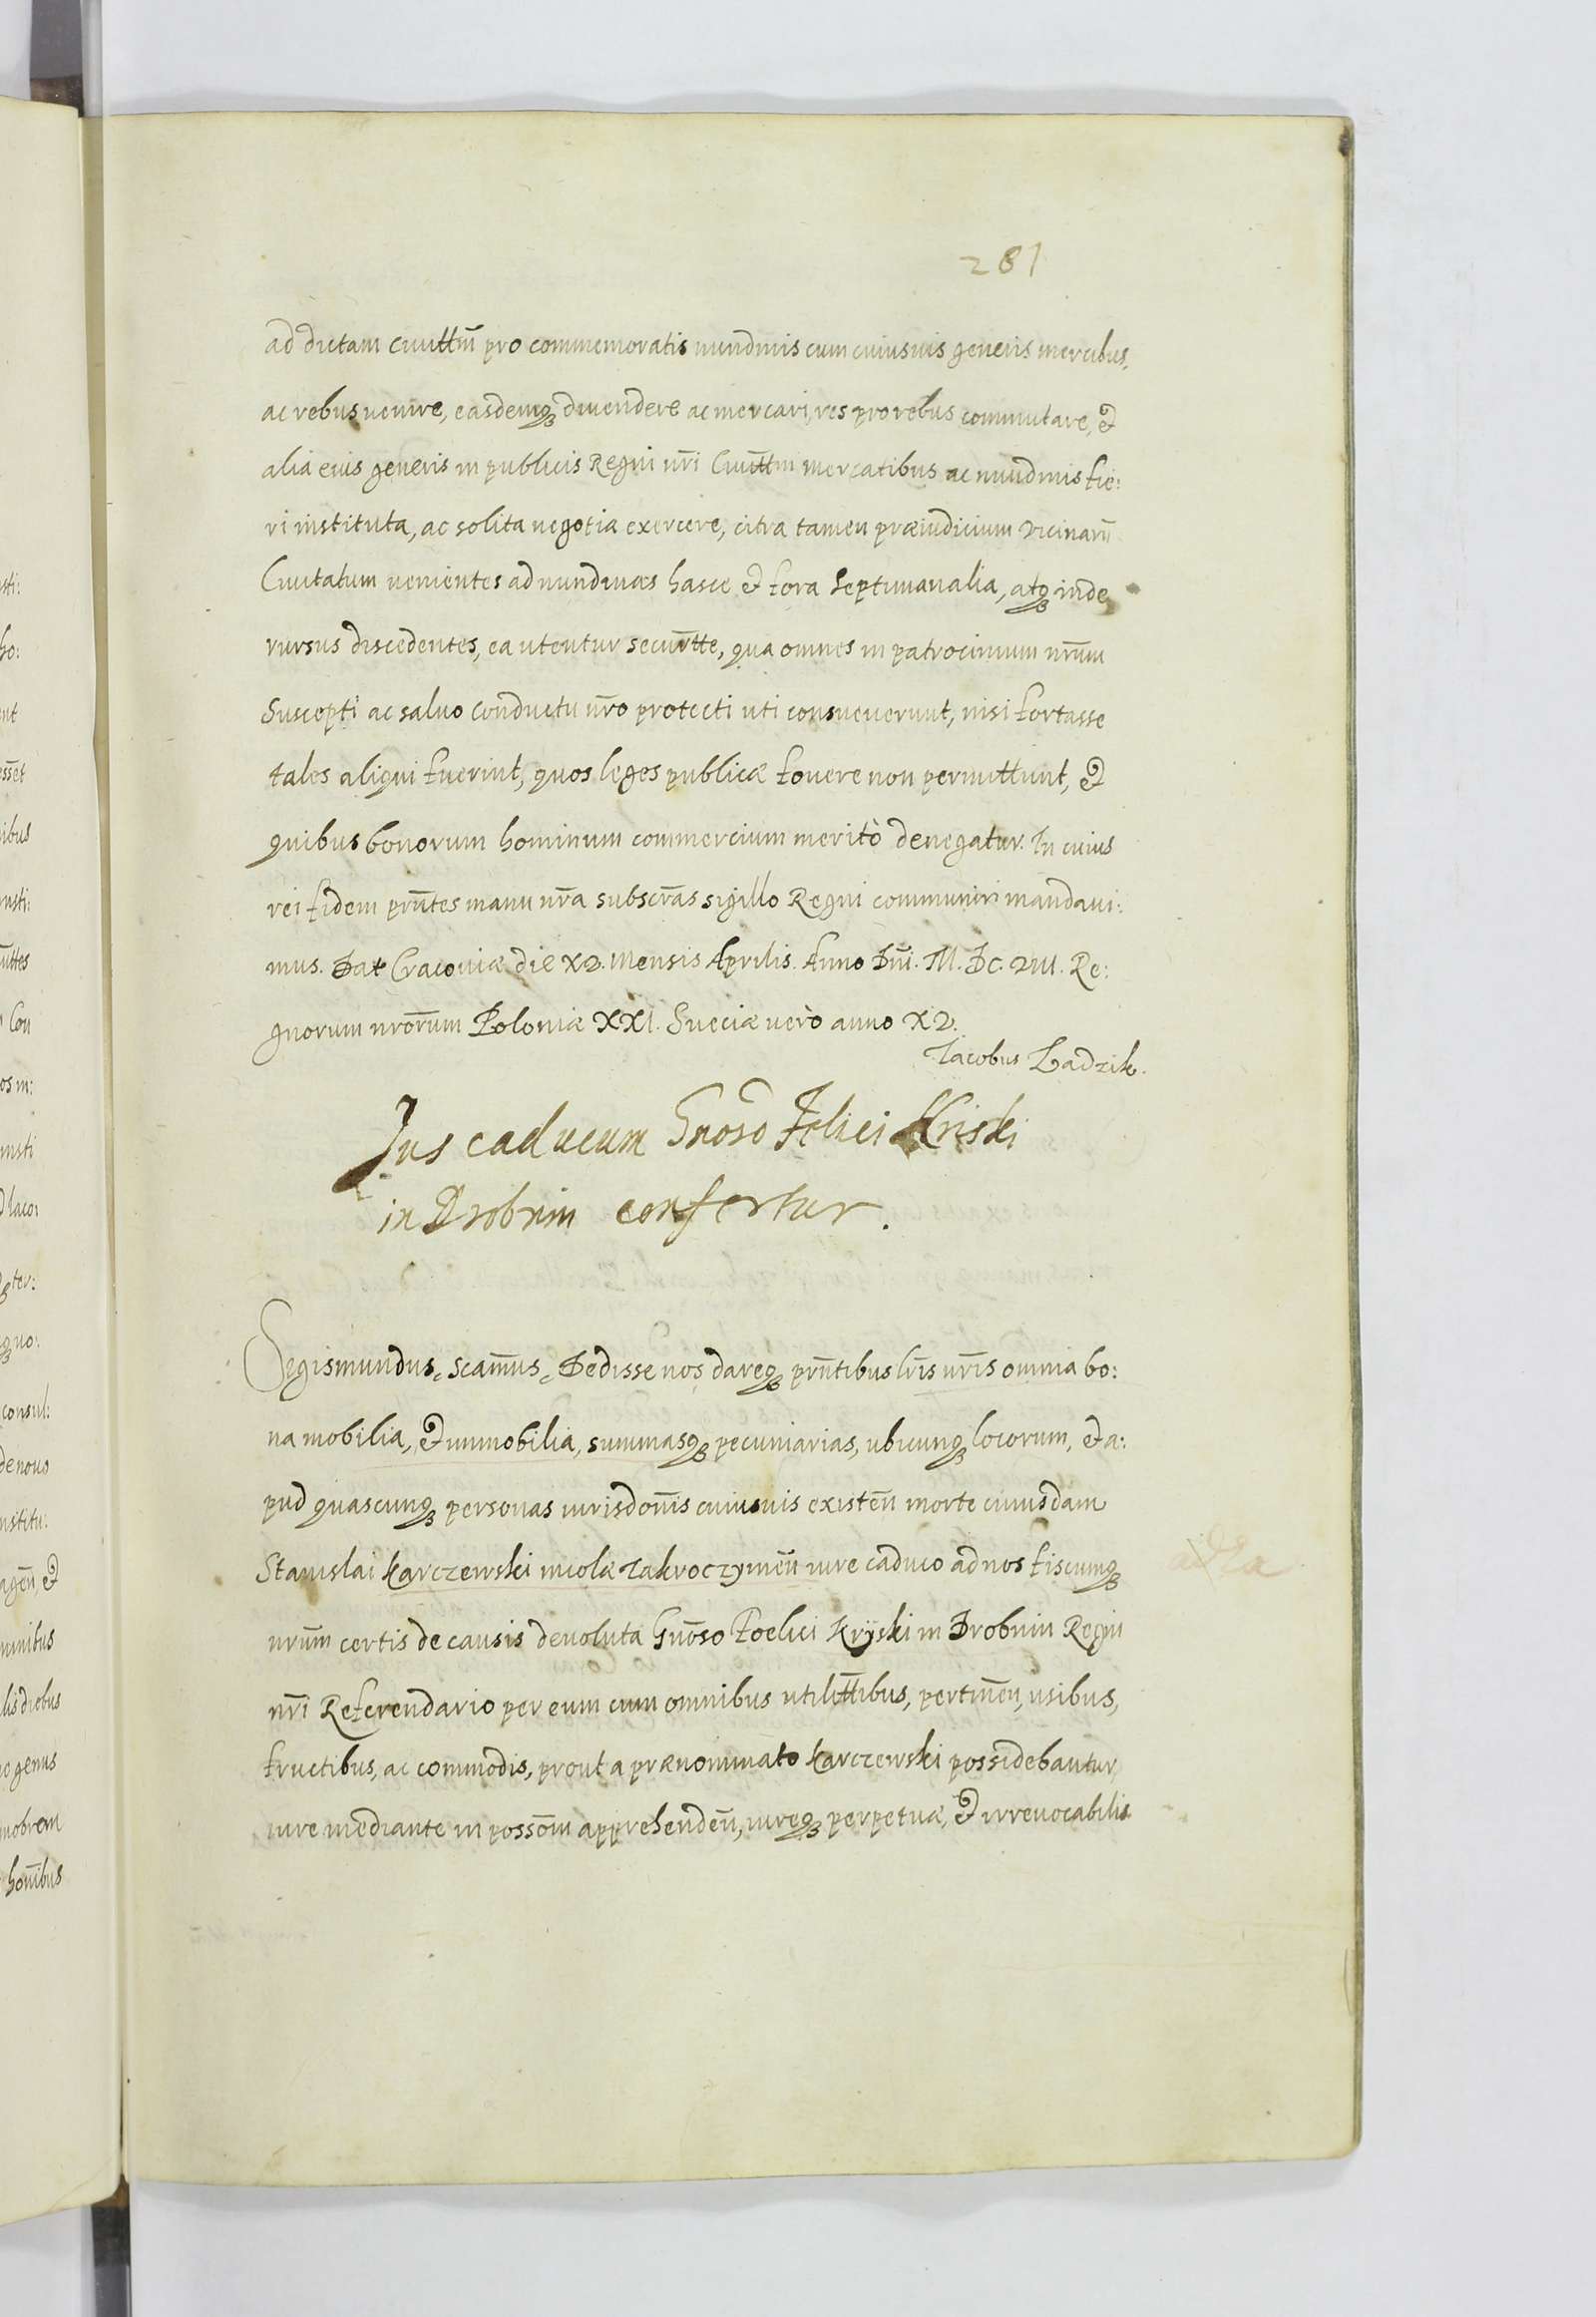 281
ad dictam Ciuittm̃ pro commemoratis nundinis cum cuiusuis generis mercibus,
ac rebus uenire, easdemq₃ diuendere ac mercari, res pro rebus commutare, &
alia eius generis in publicis Regni nr̃i Ciuittm̃ mercatibus ac nundinis fie:
ri instituta, ac solita negotia exercere, citra tamen præiudicium vicinarũ
Ciuitatum uenientes ad nundinas hasce & fora septimanalia, atq₃ inde
rursus discedentes, ea utentur securt̃te, qua omnes in patrocinium nr̃um
Suscepti ac saluo conductu nr̃o protecti uti consueuerunt, nisi fortasse
tales aliqui fuerint, quos leges publicæ fouere non permittunt, &
quibus bonorum hominum commercium meritò denegatur. In cuius
rei fidem prñtes manu nr̃a subscr̃as sigillo Regni communiri mandaui:
mus. Dat Cracouiæ die XV. Mensis Aprilis. Anno Dñi. M. DC. VIII. Re:
gnorum nror̃um Poloniæ XXI. Sueciæ uerò anno XV.
Iacobus Zadzik.
Jus caducum Gnoso Felici Kriski
in Drobnin confertur.
Segismundus, scam̃us, Dedisse nos dareq₃ prñtibus lr̃is nr̃is omnia bo:
na mobilia, & immobilia, summasq₃ pecuniarias, ubicunq₃ locorum, & a:
pud quascunq₃ personas iurisdoñis cuiusuis existeñ morte cuiusdam
Stanislai Karczewski incolæ Zakroczymeñ iure caduco ad nos fiscumq₃
nrũm certis de causis deuoluta Gnõso Foelici Kryski in Drobnin Regni
nr̃i Referendario per eum cum omnibus utilitt̃ibus, pertineñ, usibus,
fructibus, ac commodis, prout a prænominato Karczewski possidebantur,
iure mediante in possõm apprehendeñ, iureq₃ perpetuæ, & irreuocabilis